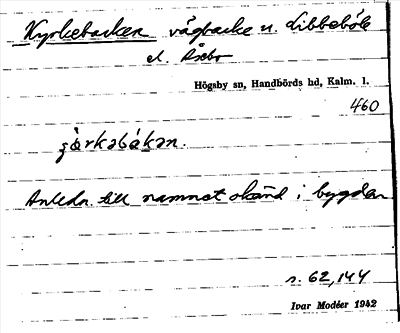 Kyrkebacken vägbacke n. Libbeböle
el. Åsebo
Högsby sn, Handbörds hd, Kalm. l.
460
çӑrkəbákən.
Anledn. till namnet okänd i bygden
s. 62, 144
Ivar Modéer 1942